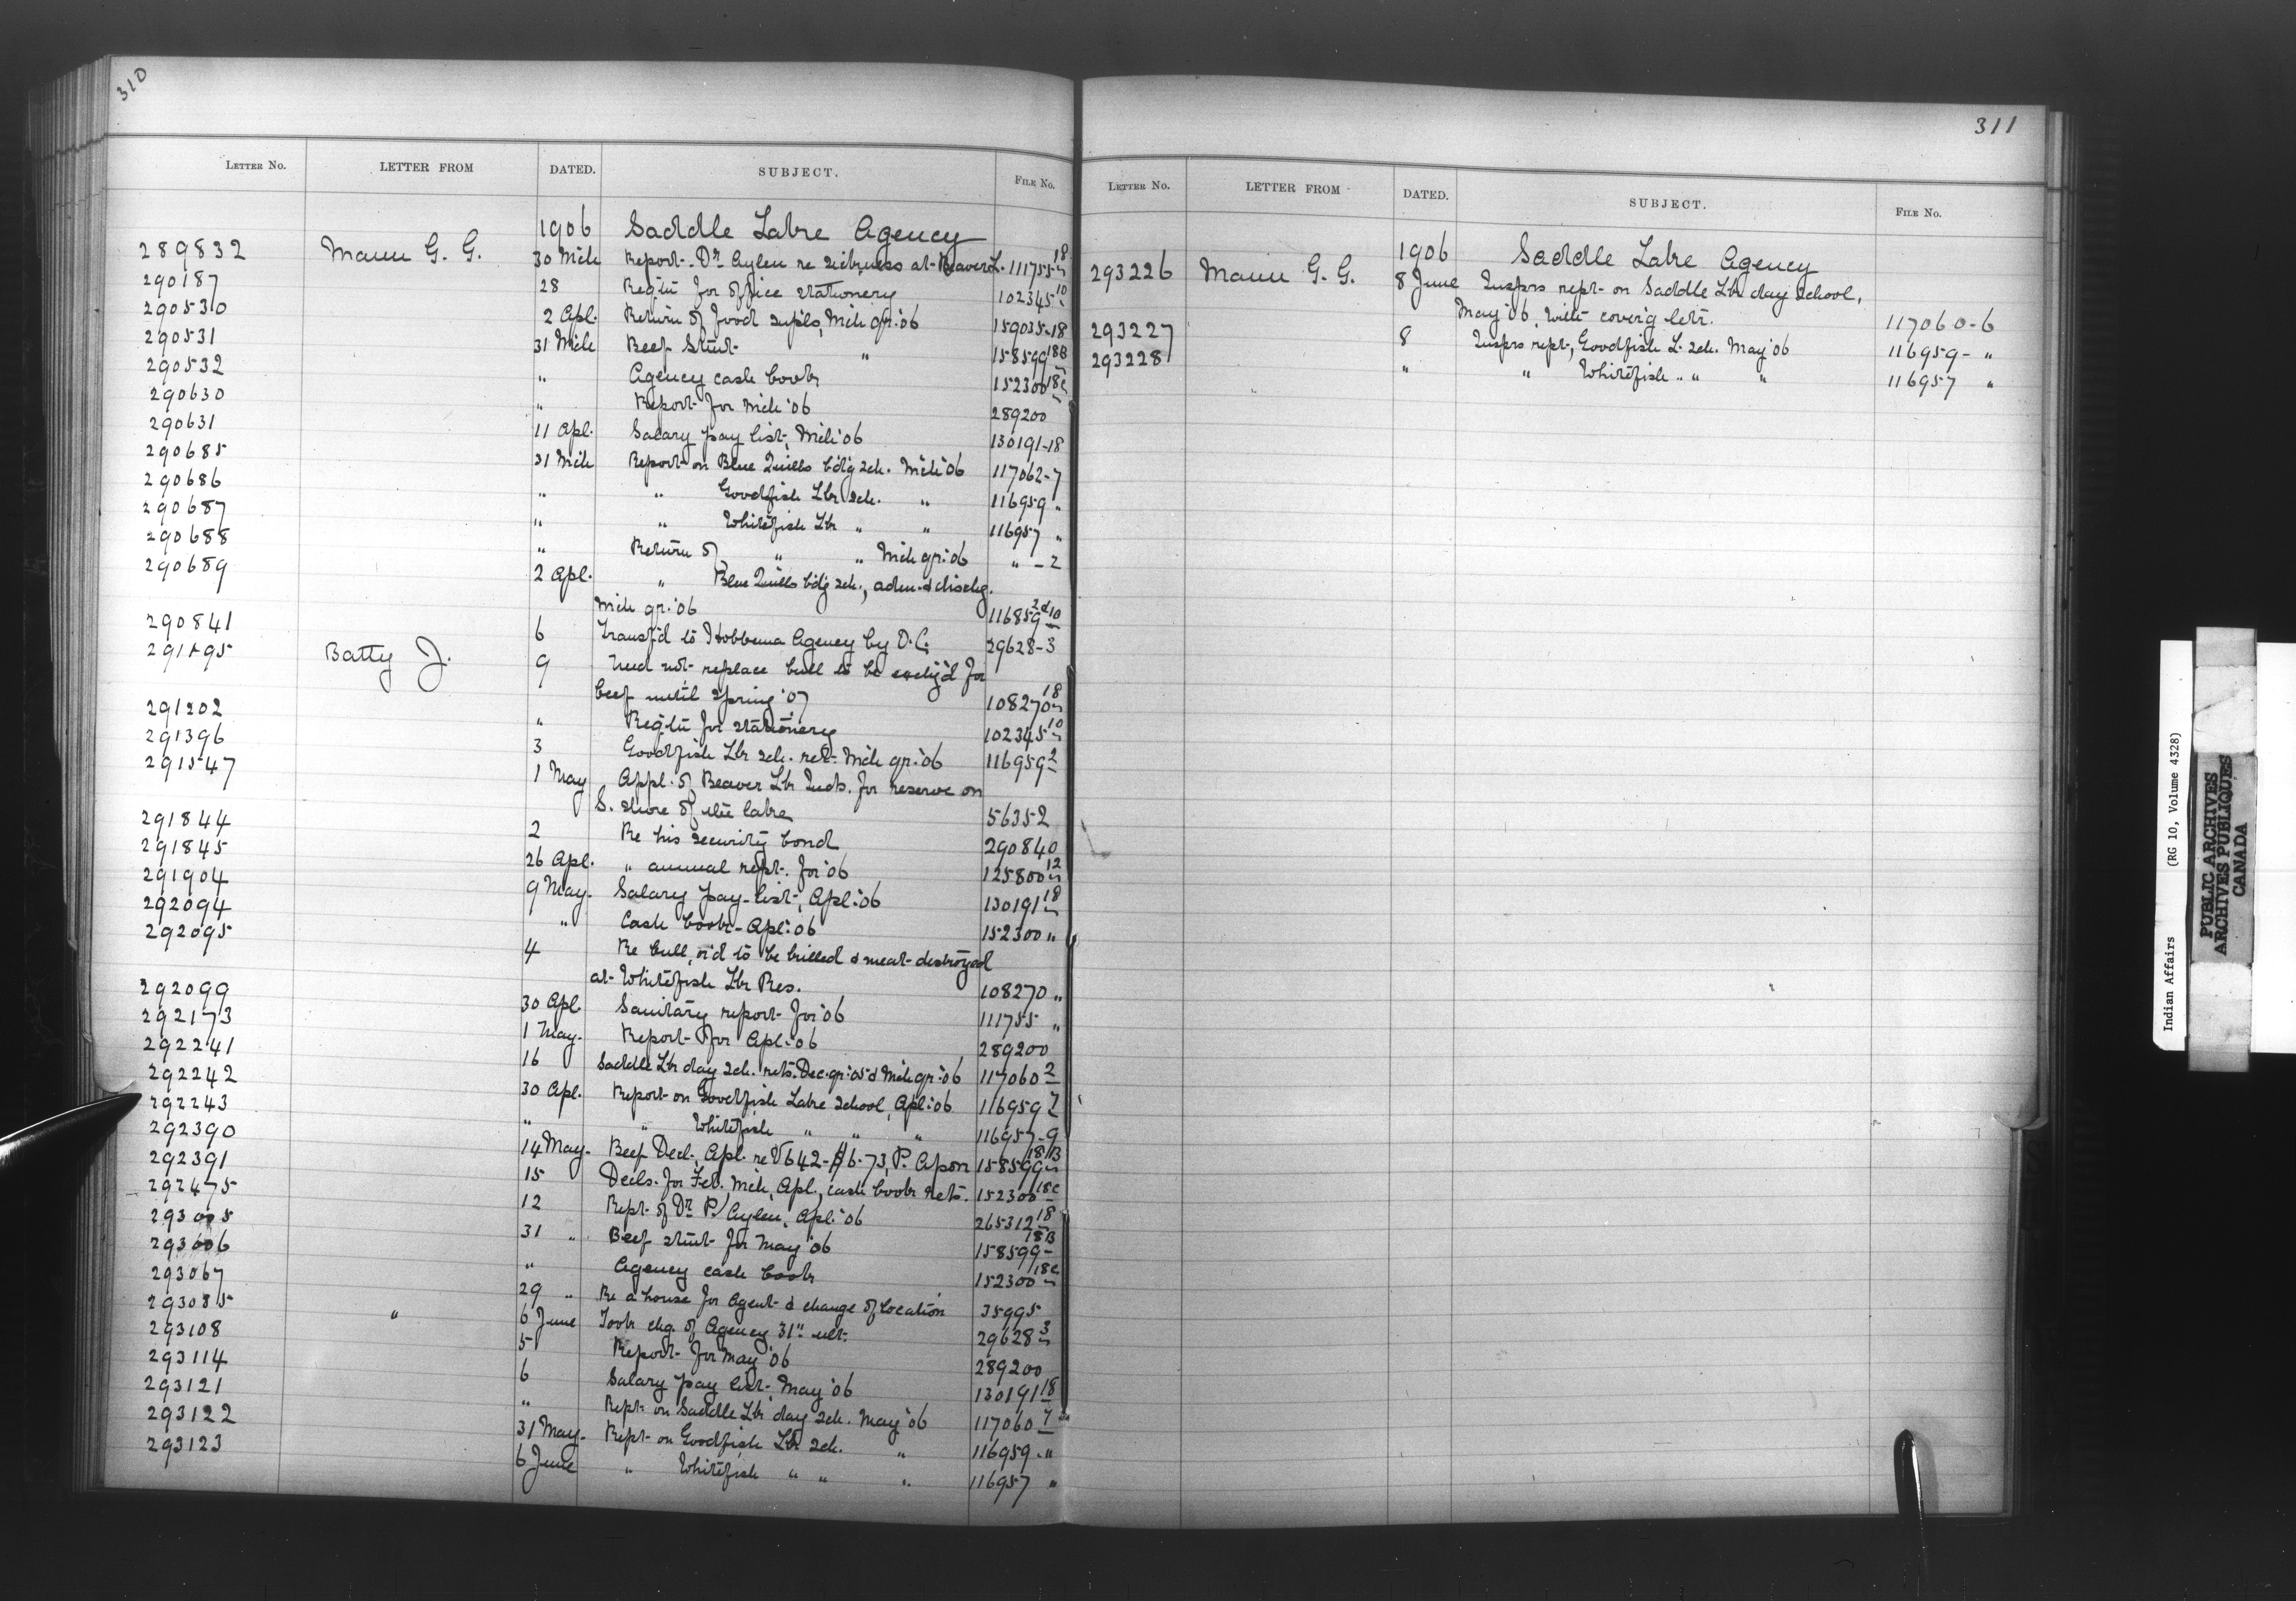 310
LETTER NO. LETTER FROM DATED. SUBJECT. FILE No.
1906 Saddle Lake Agency
289832 Mann G. G. 30 Mch Report Dr Aylen re sickness at Beaver L. 111755-18
290187 28 Reqt'n for office stationery 102345-10
290530 2 Apl. Return of food suppls, Mch qr. '06 159035-18
290531 31 Mch Beef Stmt " 158599-18B
290532 " Agency cash book 152300-18C
290630 " Report for Mch '06 289200
290631 11 Apl. Salary pay list, Mch '06 130191-18
290685 31 Mch Report on Blue Quills bd'g sch. Mch '06 117062-7
290686 " " Goodfish Lk sch. " 116959 "
290687 " " Whitefish Lk " " 116957 "
290688 " Return of " " Mch qr. '06 " - 2
290689 2 Apl. " Blue Quills bdg sch., adm. & dischg.
Mch qr. '06 116859-2&10
290841 6 Transf'd to Hobbema Agency by O.C. 29628-3
291195 Batty J. 9 Need not replace bull to be exchg'd for
beef until Spring '07 108270-18
291202 " Reqt'n for stationery 102345-10
291396 3 Goodfish Lk sch. ret. Mch qr. '06 116959-2
291547 1 May Appl. of Beaver Lk Inds. for reserve on
S. shore of the lake 56352
291844 2 Re his security bond 290840
291845 26 Apl. " annual rept. for '06 125800-12
291904 9 May. Salary pay-list, Apl. '06 130191-18
292094 " Cash book - Apl. '06 152300 "
292095 4 Re bull, o'd to be killed & meat destroyed
at Whitefish Lk Res. 108270 "
292099 30 Apl. Sanitary report for '06 111755 "
292173 1 May. Report for Apl. '06 289200
292241 16 Saddle Lk day sch. rets. Dec. qr. '05 & Mch qr. '06 117060-2
292242 30 Apl. Report on Goodfish Lake School, Apl. '06 116959-7
292243 " " Whitefish " " " 116957-9
292390 14 May. Beef Decl., Apl. re V642 - $6.73, P. Apon 158599-18B
292391 15 Decls. for Feb. Mch, Apl., cash book rets. 152300-18C
292475 12 Rept. of Dr P. Aylen, Apl. '06 265312-18
293005 31 " Beef stmt for May '06 158599-18B
293006 " Agency cash book 152300-18C
293067 29 " Re a house for Agent & change of location 35995
293085 " 6 June Took chg. of Agency 31" ult. 29628-3
293108 5 Report for May '06 289200
293114 6 Salary pay list, May '06 130191-18
293121 " Rept. on Saddle Lk day sch. May '06 117060-7
293122 31 May. Rept on Goodfish Lk sch. " 116959 - "
293123 6 June " Whitefish " " " 116957 "
311
LETTER NO. LETTER FROM DATED. SUBJECT. FILE No.
1906 Saddle Lake Agency
293226 Mann G. G. 8 June Insprs rept on Saddle Lk day school,
May '06, with cover'g letr. 117060-6
293227 8 Insprs rept, Goodfish L. sch. May '06 116959 - "
293228 " " Whitefish " " " 116957 "
Indian Affairs (RG 10, Volume 4328)
PUBLIC ARCHIVES
ARCHIVES PUBLIQUES
CANADA